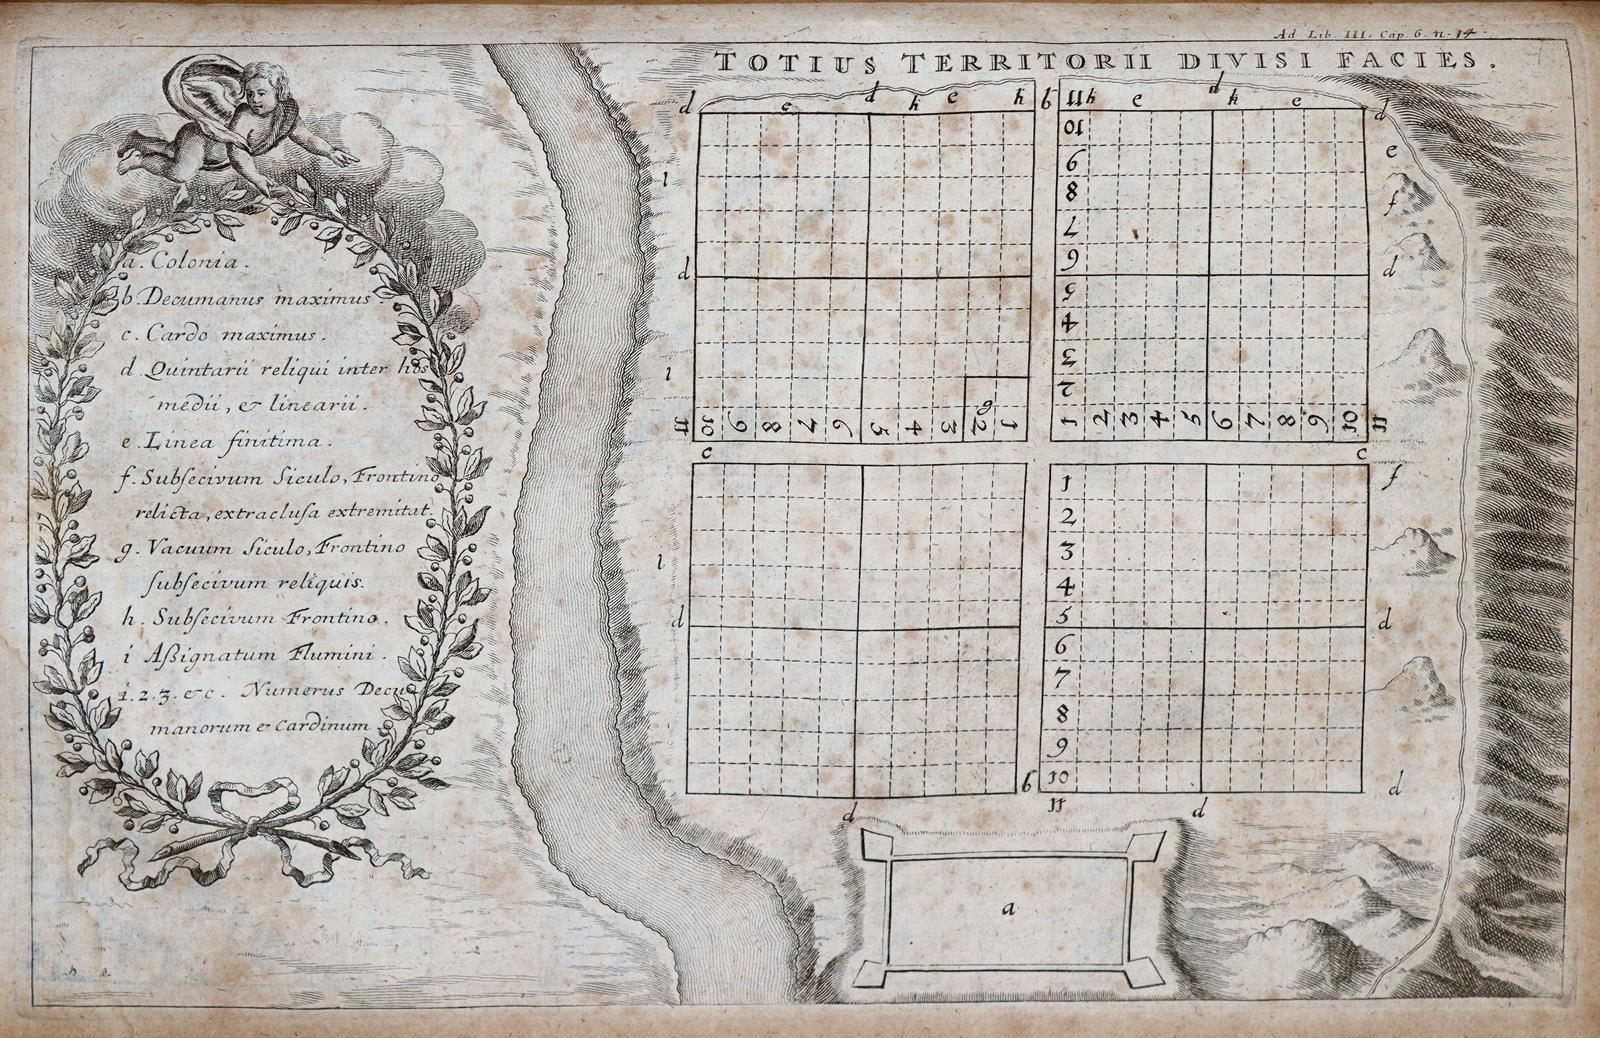 Ad Lib. III. Cap. 6. n. 14
TOTIUS TERRITORII DIVISI FACIES.
a. Colonia.
b. Decumanus maximus.
c. Cardo maximus.
d Quintarii reliqui inter hos
medii, & linearii.
e. Linea finitima.
f. Subſecivum Siculo, Frontino
relicta, extracluſa extremitat.
g. Vacuum Siculo, Frontino
ſubſecivum reliquis.
h. Subſecivum Frontino.
i Aßignatum Flumini.
1. 2. 3. &c. Numerus Decu
manorum & Cardinum
d e d h e h b 11 h e d h e d
10
9
8
7
6
5
4
3
2
i
d
i
e
f
d
g
11 10 9 8 7 6 5 4 3 2 1
1 2 3 4 5 6 7 8 9 10 11
c c
f
1
2
3
4
5
6
7
8
9
10
11
i
d
d
d
b
d d
a